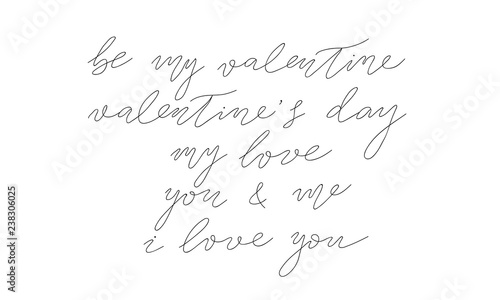 be my valentine
valentine's day
my love
you & me
i love you
Adobe Stock | #238306025